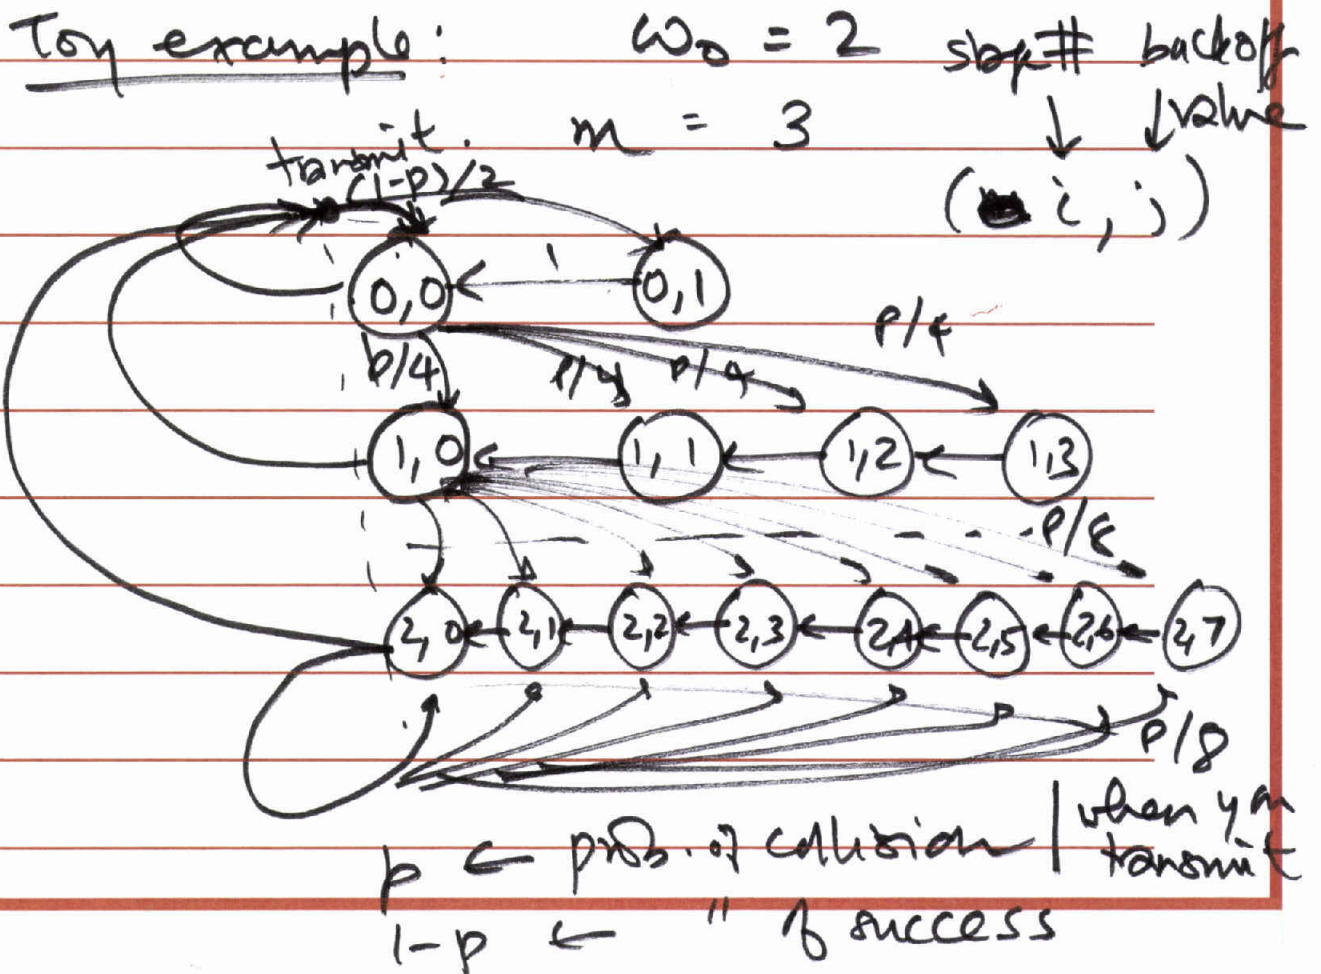 Toy example: W₀ = 2 stage# backoff
m = 3 value
transmit. (i, j)
(1-p)/2
0,0 1 0,1
p/4 p/4 p/4 p/4
1,0 1,1 1,2 1,3
p/8
2,0 2,1 2,2 2,3 2,4 2,5 2,6 2,7
p/8
p ← prob. of collision | when you
transmit
1-p ← " of success